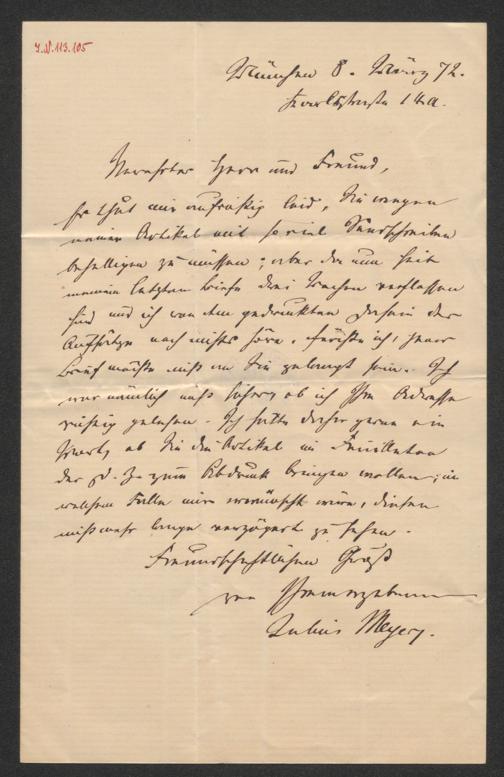 I.N. 113.105
München 8. März 72.
14a.
Verehrter Herr und Freund,
Es thut mir aufrichtig leid, Sie wegen
meiner Artikel mit so viel Sendschreiben
behelligen zu müssen; aber da nun seit
meinem letzten Briefe drei Wochen verflossen
sind und ich von dem gedruckten Dasein der
Aufsätze noch nichts höre, fürchte ich, jener
Brief möchte nicht an Sie gelangt sein. Ich
war nämlich nicht sicher, ob ich Ihre Adresse
richtig gelesen. Ich hätte daher gerne ein
Wort, ob Sie die Artikel im Feuilleton
der Pr. zum Abdruck bringen wollen; in
welchem Falle mir erwünscht wäre, diesen
nicht mehr lange verzögert zu sehen.
Freundschaftlichen Gruß
von Ihrem ergebenen
Julius Meyer.